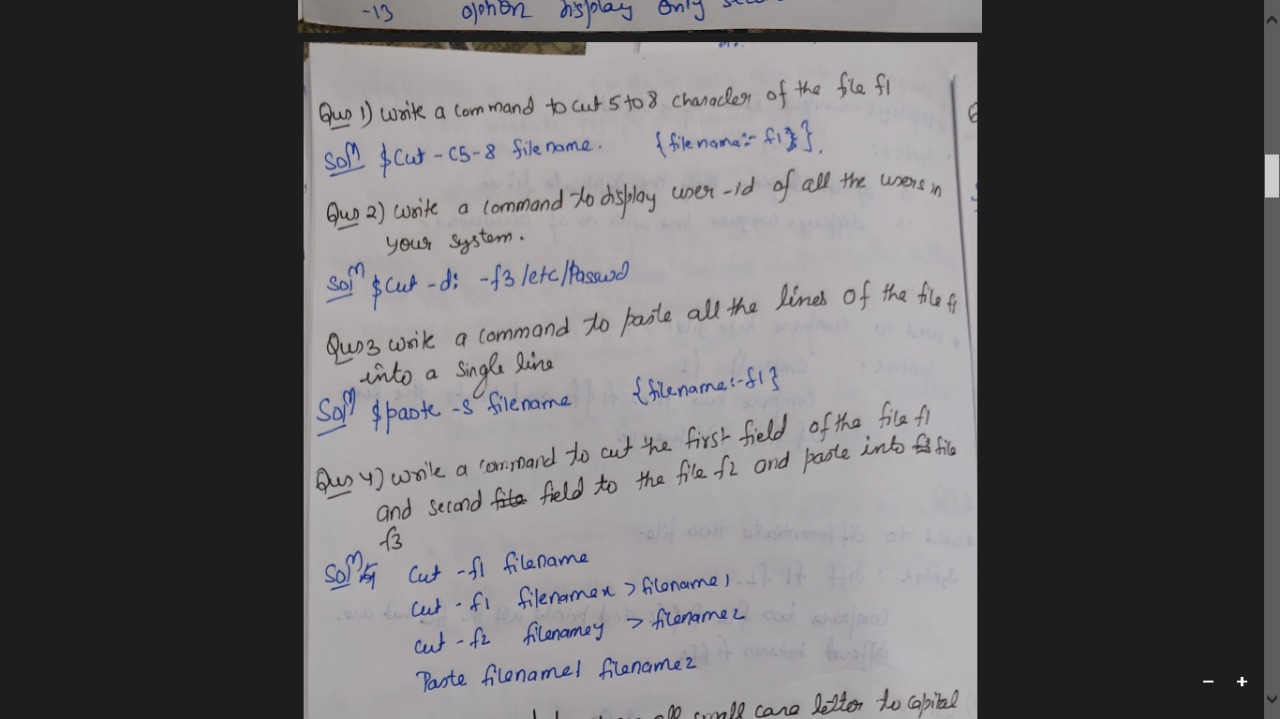 -13 option display only
Qus 1) Write a command to cut 5 to 8 character of the file f1
Solⁿ $Cut -C5-8 filename. {filename:- f1}.
Qus 2) Write a command to display user-id of all the users in
your system.
Solⁿ $cut -d: -f3 /etc/Passwd
Qus 3 Write a command to paste all the lines of the file f1
into a single line
Solⁿ $paste -s filename {filename:-f1}
Qus 4) Write a command to cut the first field of the file f1
and second file field to the file f2 and paste into f3 file
f3
Solⁿ cut -f1 filename
cut -f1 filenamex >filename1
cut -f2 filenamey > filename2
Paste filename1 filename2
all small case letter to capital